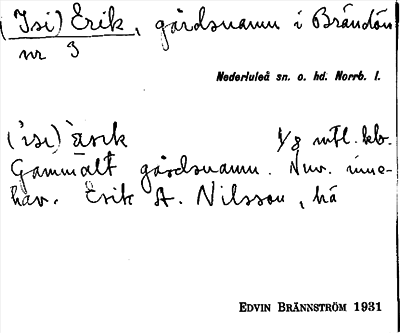 (Isi) Erik, gårdsnamn i Brändön
nr 3
Nederluleå sn. o. hd. Norrb. l.
('isi) ärik 1/8 mtl. kb.
Gammalt gårdsnamn. Nuv. inne-
hav. Erik A. Nilsson, hä
EDVIN BRÄNNSTRÖM 1931